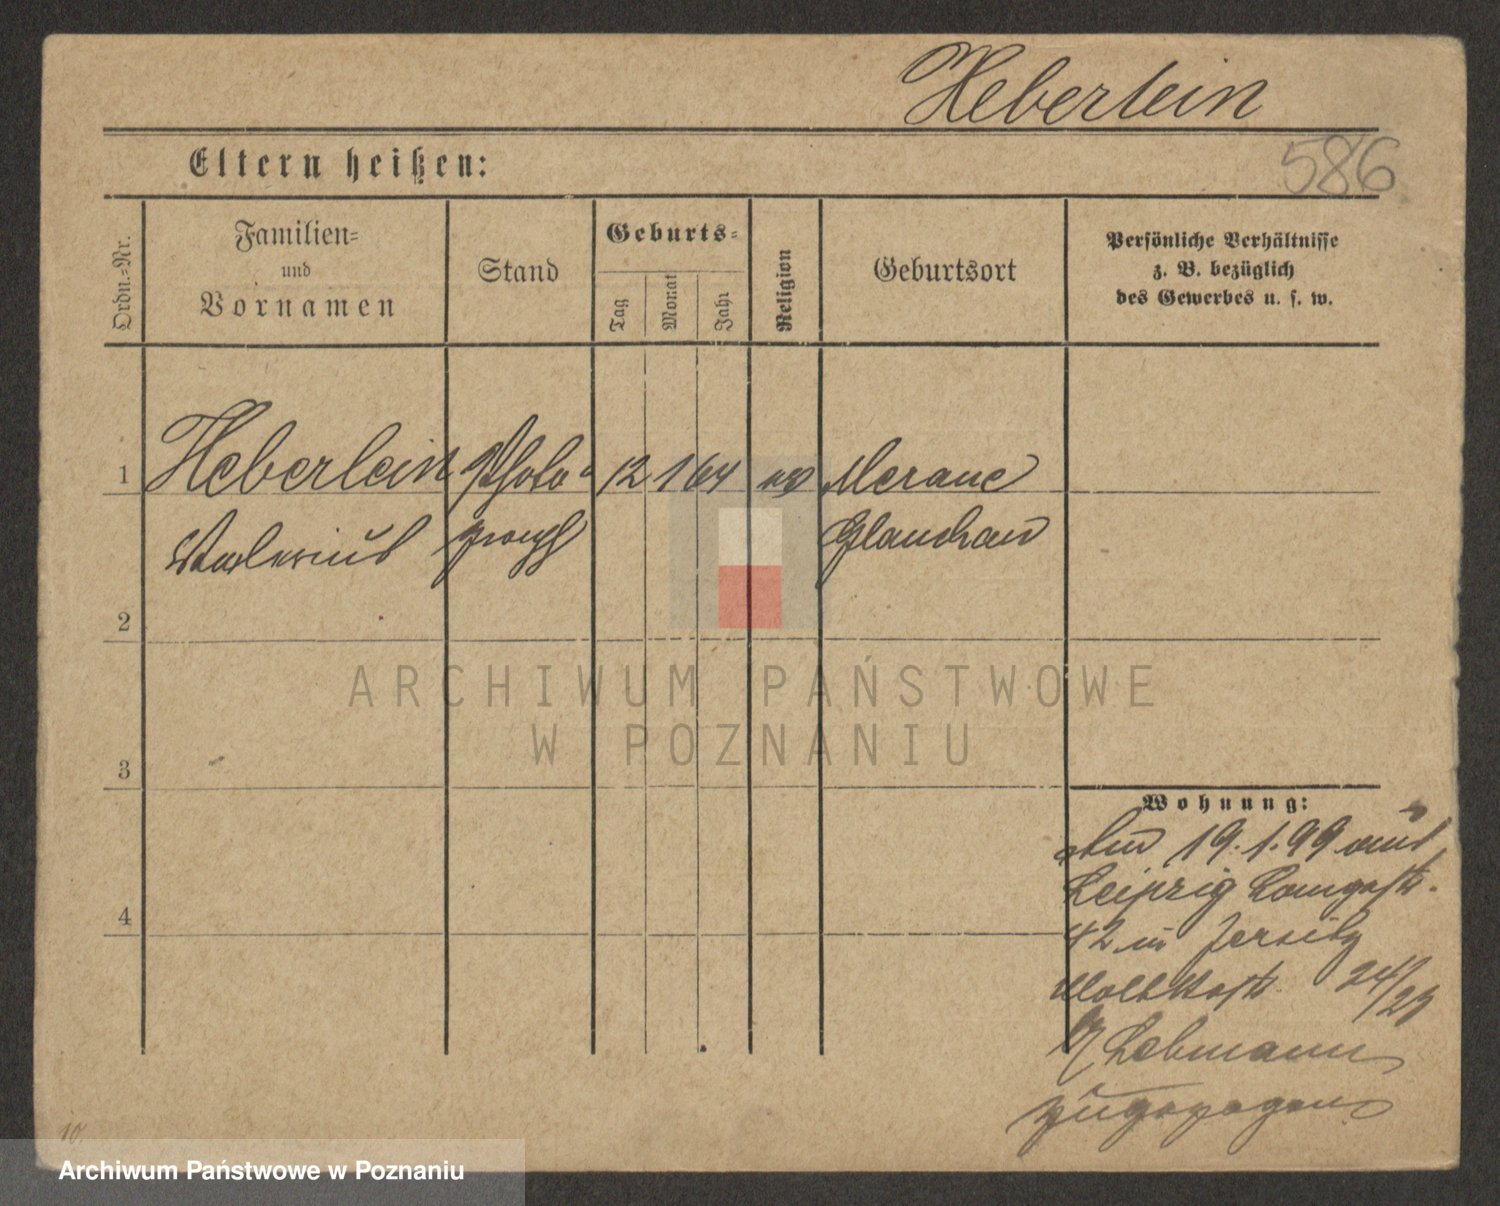 Heberlein
586
Eltern heißen:
Ordn.=Nr.
Familien=
und
Vornamen
Stand
Geburts=
Tag
Monat
Jahr
Religion
Geburtsort
Persönliche Verhältnisse
z. B. bezüglich
des Gewerbes u. s. w.
1 Heberlein Photo= 12 1 64 Merane
Valerius graph Glauchau
2
ARCHIWUM PAŃSTWOWE
W POZNANIU
3
4
Wohnung:
Am 19.1.99 aus
Leipzig Langestr.
42 in Jersitz
Moltkestr. 24/25
Lebmann
zugezogen
10.
Archiwum Państwowe w Poznaniu